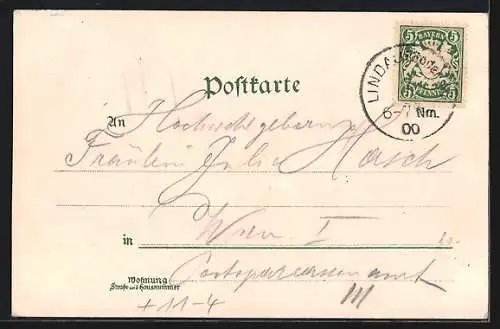 5 BAYERN 5
5 PFENNIG 5
LINDAU
6-7 Nm.
00
Postkarte
An Hochwohlgeboren
Fräulein Julie
Wien I
in
Wohnung
Straße und Hausnummer
+11-4